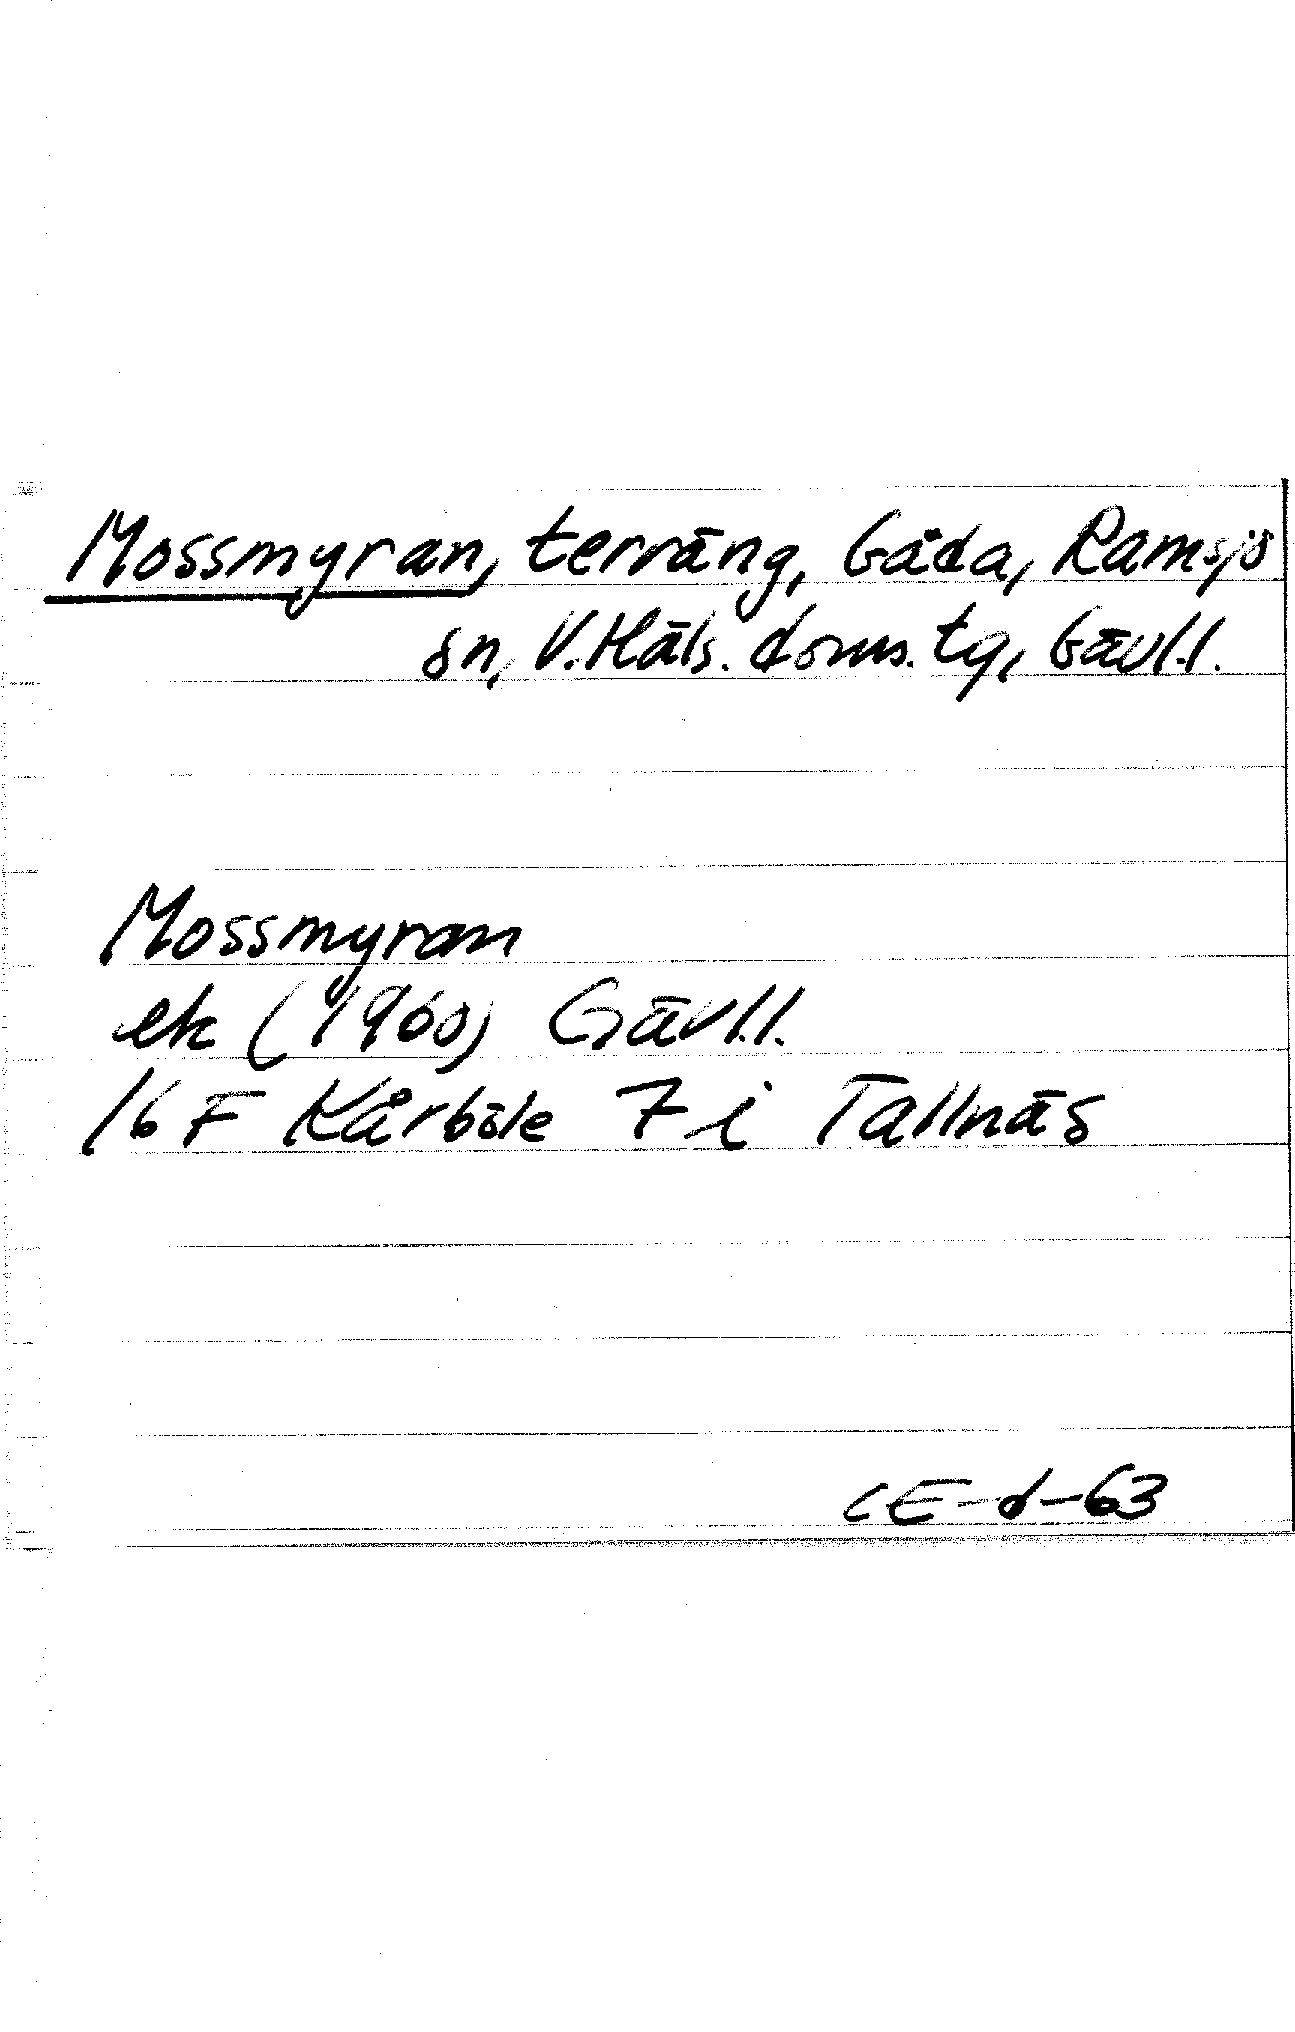 Mossmyran, terräng, Gåda, Ramsjö
sn, V. Häls. doms. tg, Gävl.l.
Mossmyran
ek (1960) Gävl.l.
16 F Kårböle 7 i Tallnäs
CE-d-63